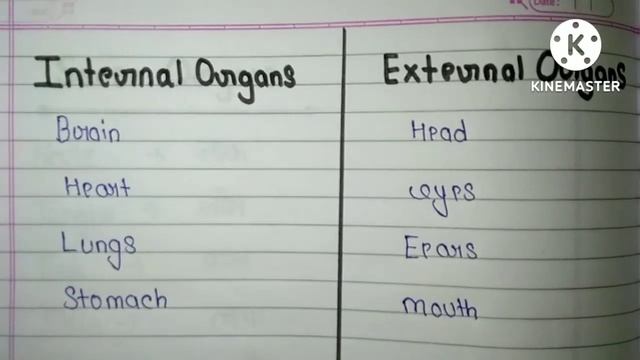 Date:
KINEMASTER
Internal Organs External Organs
Brain Head
Heart eyes
Lungs Eears
Stomach Mouth